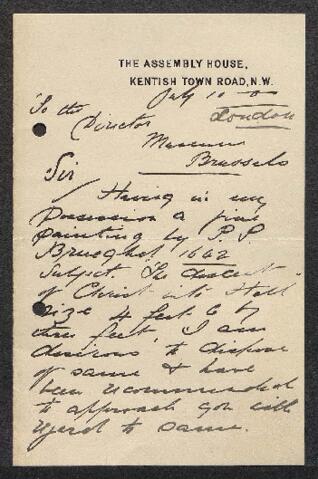 THE ASSEMBLY HOUSE,
KENTISH TOWN ROAD, N.W.
July 10
London
To the
Director
Museum
Brussels
Sir
Having in my
Possession a fine
painting by P. P.
Brueghel 1642
Subject The descent
of Christ into Hell
size 4 feet 6 by
three feet, I am
desirous to dispose
of same & have
been recommended
to approach you with
regard to same.